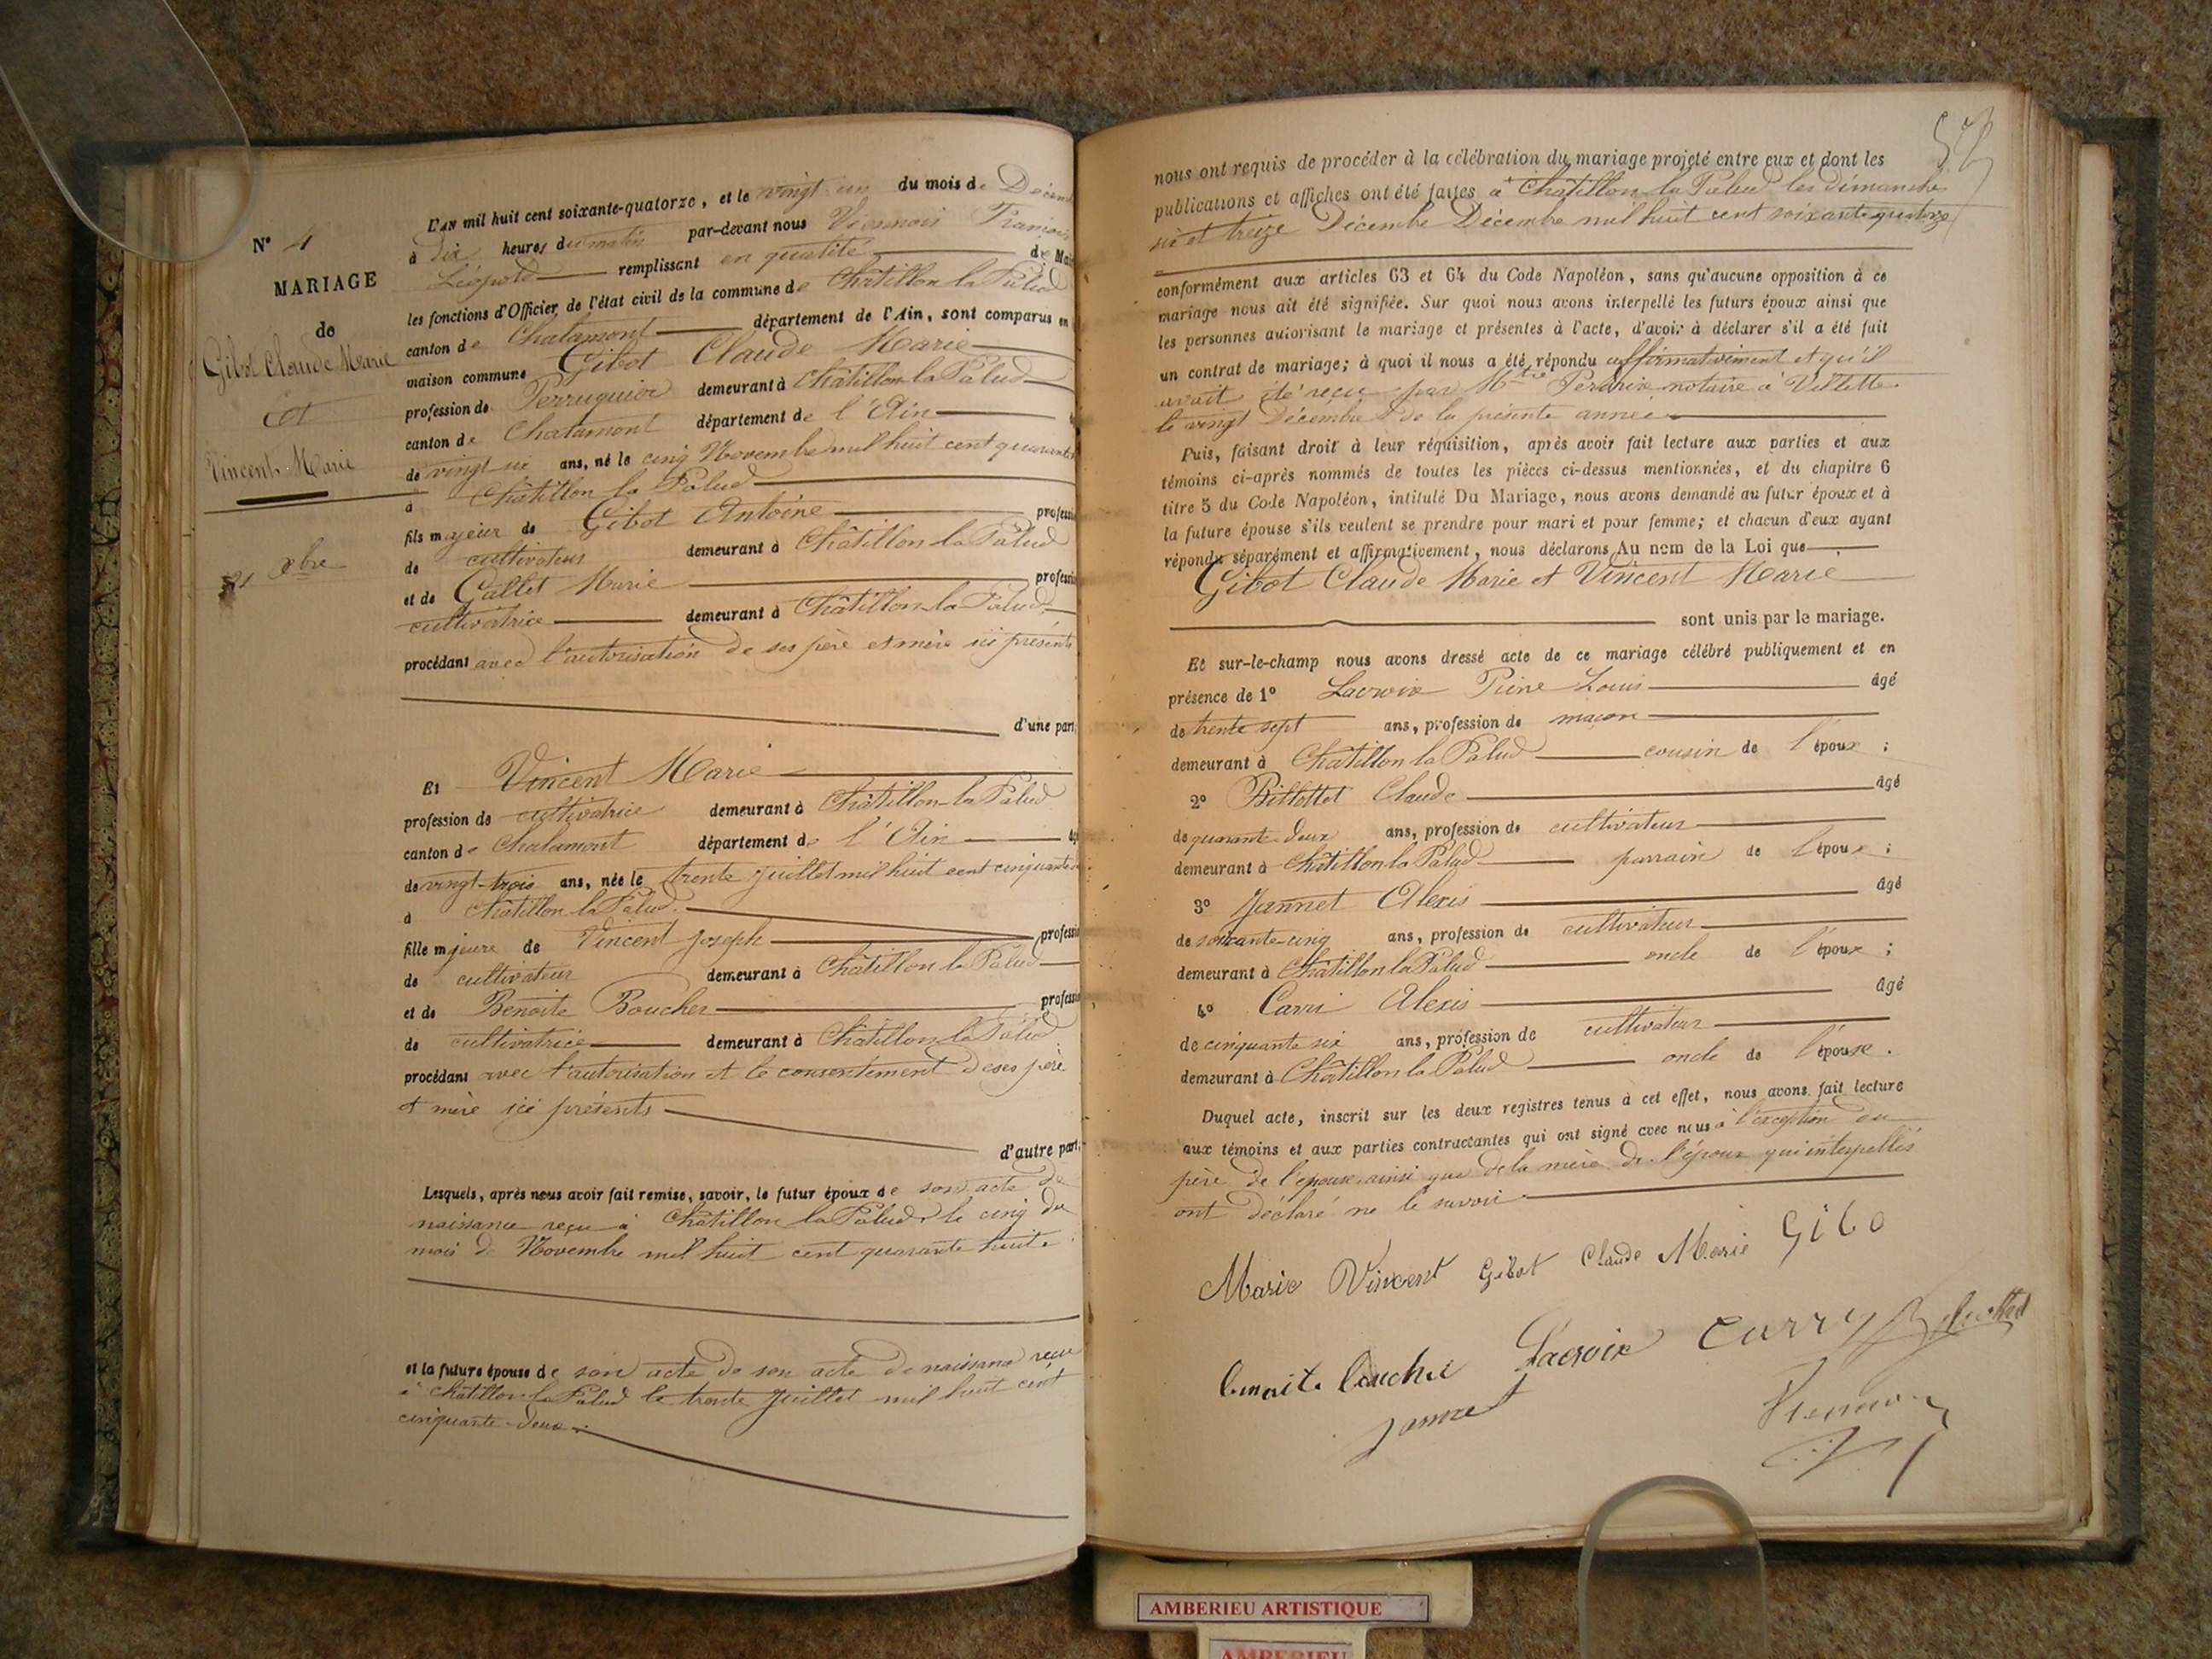 N° 4
MARIAGE
de
Gibot Claude Marie
et
Vincent Marie
21 Xbre
L'AN mil huit cent soixante-quatorze, et le vingt-un du mois de Décemb
à dix heures du matin par-devant nous Viennois François
Léopold remplissant en qualité de Mai
les fonctions d'Officier de l'état civil de la commune de Châtillon la Palud
canton de Chalamont département de l'Ain, sont comparus en
maison commune Gibot Claude Marie
profession de Perruquier demeurant à Châtillon-la Palud
canton de Chalamont département de l'Ain
de vingt six ans, né le cinq Novembre mil huit cent quarante
à Châtillon la Palud
fils majeur de Gibot Antoine professi
de cultivateur demeurant à Châtillon la Palud
et de Gallet Marie professi
cultivatrice demeurant à Châtillon-la-Palud
procédant avec l'autorisation de ses père et mère ici présents
d'une part,
Et Vincent Marie
profession de cultivatrice demeurant à Châtillon-la Palud
canton de Chalamont département de l'Ain âgé
de vingt-trois ans, née le trente juillet mil huit cent cinquante
à Châtillon la Palud
fille majeure de Vincent Joseph professi
de cultivateur demeurant à Châtillon la Palud
et de Benoite Boucher professi
de cultivatrice demeurant à Châtillon la Palud
procédant avec l'autorisation et le consentement de ses père
et mère ici présents
d'autre part;
Lesquels, après nous avoir fait remise, savoir, le futur époux de son acte de
naissance reçu à Châtillon la Palud le cinq du
mois de Novembre mil huit cent quarante huit.
et la future épouse de son acte de son acte de naissance reçu
à Châtillon la Palud le trente Juillet mil huit cent
cinquante-deux.
nous ont requis de procéder à la célébration du mariage projeté entre eux et dont les
publications et affiches ont été faites à Châtillon-la Palud les dimanches
six et treize Décembre Décembre mil huit cent soixante quatorze
conformément aux articles 63 et 64 du Code Napoléon, sans qu'aucune opposition à ce
mariage nous ait été signifiée. Sur quoi nous avons interpellé les futurs époux ainsi que
les personnes autorisant le mariage et présentes à l'acte, d'avoir à déclarer s'il a été fait
un contrat de mariage; à quoi il nous a été répondu affirmativement et qu'il
avait été reçu par Mtre Perdrix notaire à Villette
le vingt Décembre de la présente année
Puis, faisant droit à leur réquisition, après avoir fait lecture aux parties et aux
témoins ci-après nommés de toutes les pièces ci-dessus mentionnées, et du chapitre 6
titre 5 du Code Napoléon, intitulé Du Mariage, nous avons demandé au futur époux et à
la future épouse s'ils veulent se prendre pour mari et pour femme; et chacun d'eux ayant
répondu séparément et affirmativement, nous déclarons Au nom de la Loi que
Gibot Claude Marie et Vincent Marie
sont unis par le mariage.
Et sur-le-champ nous avons dressé acte de ce mariage célébré publiquement et en
présence de 1° Lacroix Pierre Louis âgé
de trente sept ans, profession de maçon
demeurant à Châtillon la Palud cousin de l'époux;
2° Billottet Claude âgé
de quarante deux ans, profession de cultivateur
demeurant à Châtillon la Palud parrain de l'époux;
3° Jannet Alexis âgé
de soixante-cinq ans, profession de cultivateur
demeurant à Châtillon la Palud oncle de l'époux;
4° Carri Alexis âgé
de cinquante six ans, profession de cultivateur
demeurant à Châtillon la Palud oncle de l'épouse.
Duquel acte, inscrit sur les deux registres tenus à cet effet, nous avons fait lecture
aux témoins et aux parties contractantes qui ont signé avec nous à l'exception du
père de l'épouse ainsi que de la mère de l'époux qui interpellés
ont déclaré ne le savoir
Marie Vincent Gibot Claude Marie Gibo
benoite bouche Lacroix Curry
Jannet
AMBERIEU ARTISTIQUE
AMBERIEU